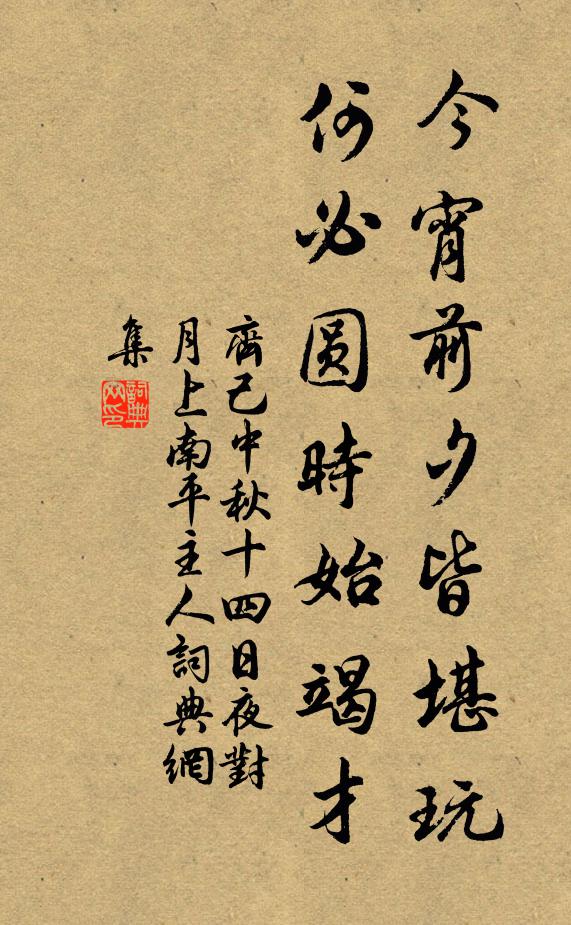 今宵前夕皆堪玩
何必圆時始竭才
齊己中秋十四日夜對
月上南平主人詞典網
集
詞典
网印